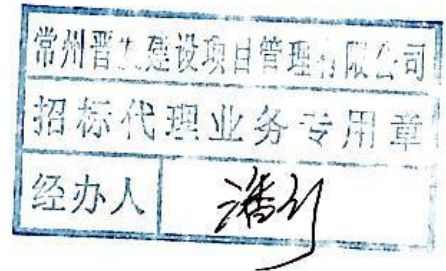 常州晋大建设项目管理有限公司
招标代理业务专用章
经办人